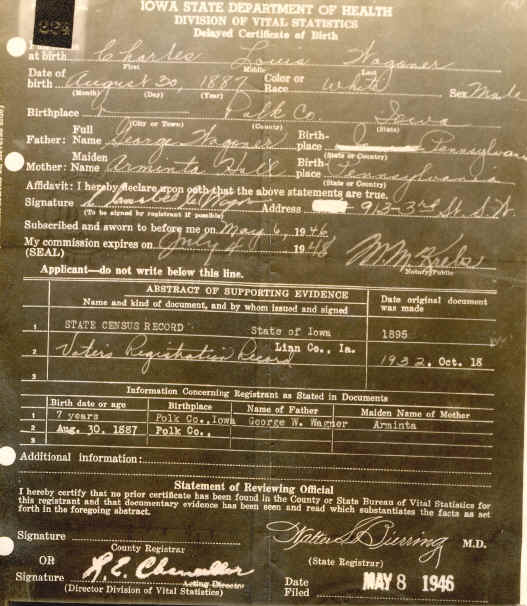 IOWA STATE DEPARTMENT OF HEALTH
DIVISION OF VITAL STATISTICS
Delayed Certificate of Birth
at birth Charles Louis Wagoner
First Middle Last
Date of birth August 30, 1887 Color or Race White Sex Male
(Month) (Day) (Year)
Birthplace Polk Co. Iowa
(City or Town) (County) (State)
Father: Full Name George Wagoner Birthplace Pennsylvan
(State or Country)
Mother: Maiden Name Arminta Hall Birthplace Pennsylvania
(State or Country)
Affidavit: I hereby declare upon oath that the above statements are true.
Signature Address 913-3rd St. S.W.
(To be signed by registrant if possible)
Subscribed and sworn to before me on May 6, 1946
My commission expires on July 4 1948 M. McKrebs
(SEAL) Notary Public
Applicant—do not write below this line.
ABSTRACT OF SUPPORTING EVIDENCE
Name and kind of document, and by whom issued and signed Date original document was made
1 STATE CENSUS RECORD State of Iowa 1895
2 Voters Registration Record Linn Co., Ia. 1932. Oct. 18
3
Information Concerning Registrant as Stated in Documents
Birth date or age Birthplace Name of Father Maiden Name of Mother
1 7 years Polk Co., Iowa George W. Wagner Arminta
2 Aug. 30. 1887 Polk Co.,
3
Additional information:
Statement of Reviewing Official
I hereby certify that no prior certificate has been found in the County or State Bureau of Vital Statistics for
this registrant and that documentary evidence has been seen and read which substantiates the facts as set
forth in the foregoing abstract.
Signature Walter L. Bierring M.D.
County Registrar (State Registrar)
OR
Signature R.E. Chancellor Acting Director
(Director Division of Vital Statistics)
Date Filed MAY 8 1946